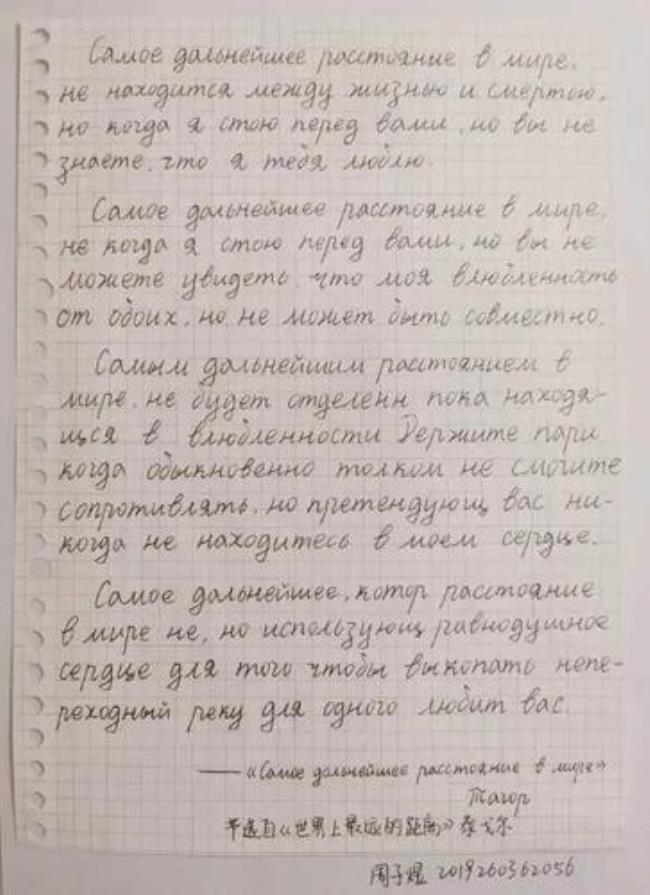 Самое дальнейшее расстояние в мире,
не находится между жизнью и смертью,
но когда я стою перед вами, но вы не
знаете, что я тебя люблю.
Самое дальнейшее расстояние в мире,
не когда я стою перед вами, но вы не
можете увидеть, что моя влюбленность
от обоих, но не может быть совместно.
Самым дальнейшим расстоянием в
мире, не будет отделенн пока находя-
щся в влюбленности Держите пари
когда обыкновенно толком не смогите
сопротивлять, но претендующ вас ни-
когда не находитесь в моем сердце.
Самое дальнейшее, котор расстояние
в мире не, но использующ равнодушное
сердце для того чтобы выкопать непе-
реходный реку для одного любит вас.
—— «Самое дальнейшее расстояние в мире»
Тагор
节选自《世界上最远的距离》泰戈尔
周子煜 2019260362056